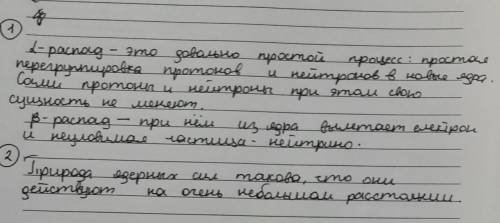 ①
α-распад - это довольно простой процесс: простая
перегруппировка протонов и нейтронов в новые ядра.
Сами протоны и нейтроны при этом свою
сущность не меняют.
β-распад - при нём из ядра вылетает електрон
и неуловимая частица - нейтрино.
②
Природа ядерных сил такова, что они
действуют на очень небольшом расстоянии.